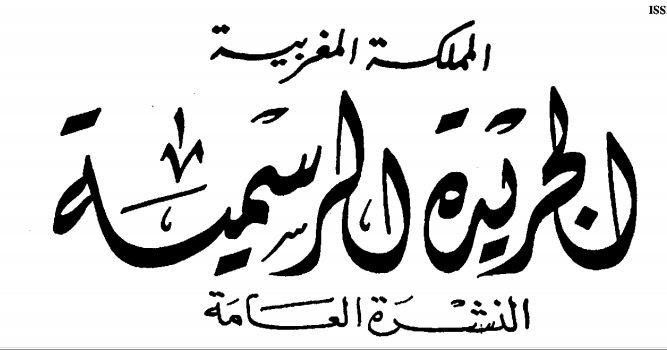 ISS
المملكة المغربية
الجريدة الرسمية
النشرة العامة